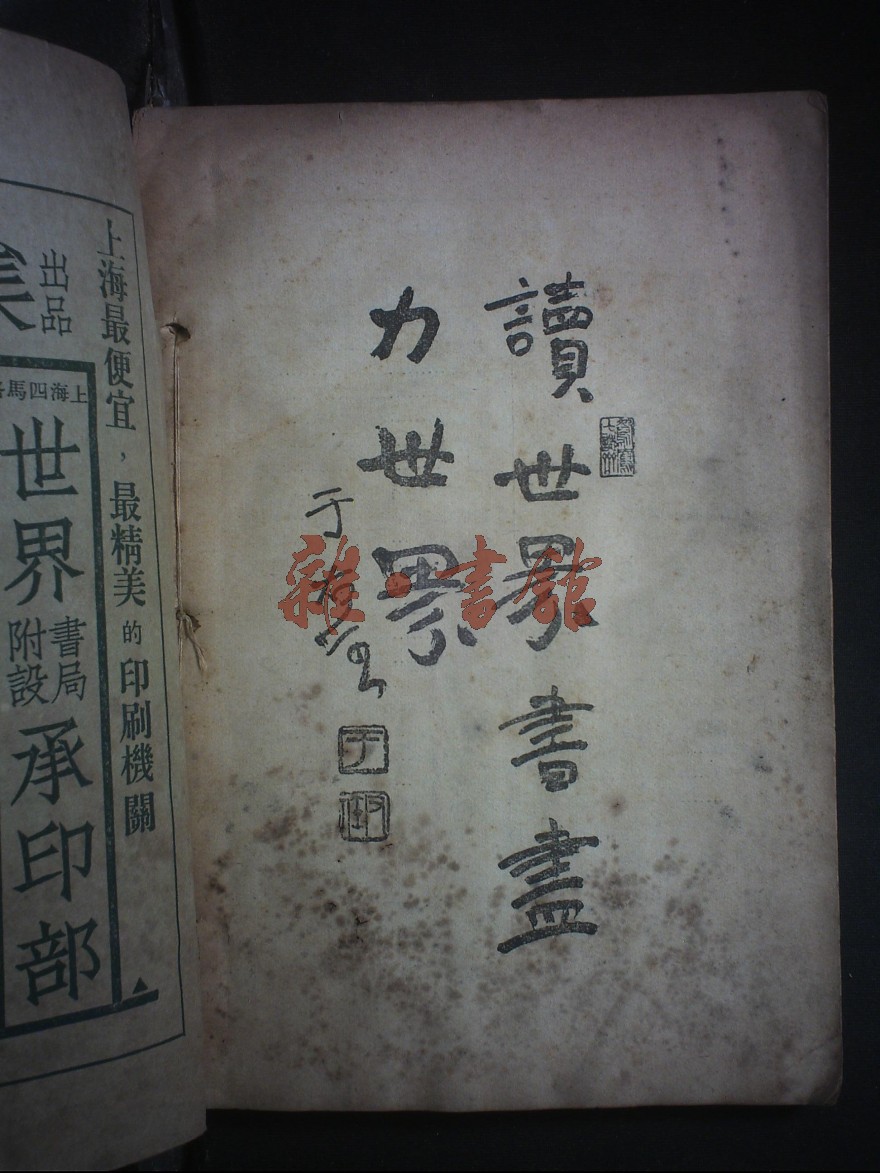 讀世界書盡
力世界
于
雜·書館
上海最便宜，最精美的印刷機關
出品
上海四馬
世界書局附設承印部